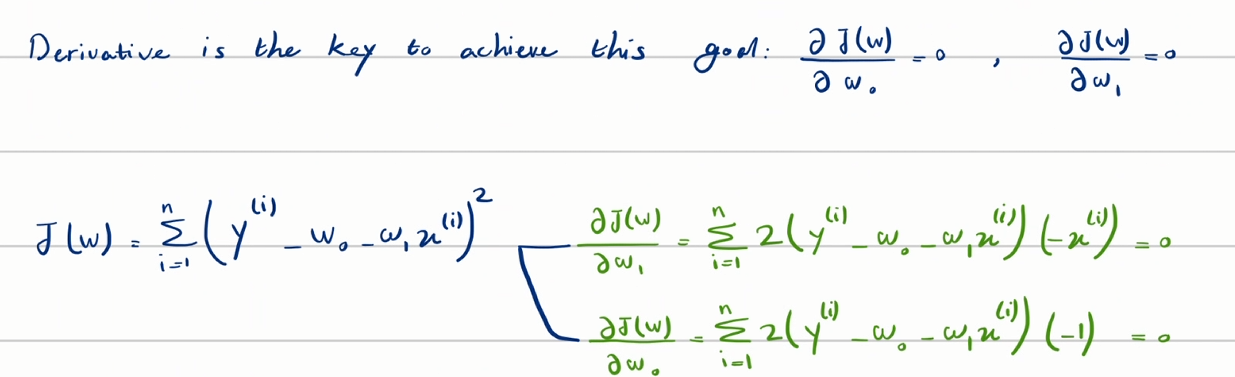 Derivative is the key to achieve this goal: ∂J(w)/∂w₀ = 0 , ∂J(w)/∂w₁ = 0
J(w) = Σᵢ₌₁ⁿ (y⁽ⁱ⁾ - w₀ - w₁x⁽ⁱ⁾)² ∂J(w)/∂w₁ = Σᵢ₌₁ⁿ 2(y⁽ⁱ⁾ - w₀ - w₁x⁽ⁱ⁾)(-x⁽ⁱ⁾) = 0
∂J(w)/∂w₀ = Σᵢ₌₁ⁿ 2(y⁽ⁱ⁾ - w₀ - w₁x⁽ⁱ⁾)(-1) = 0